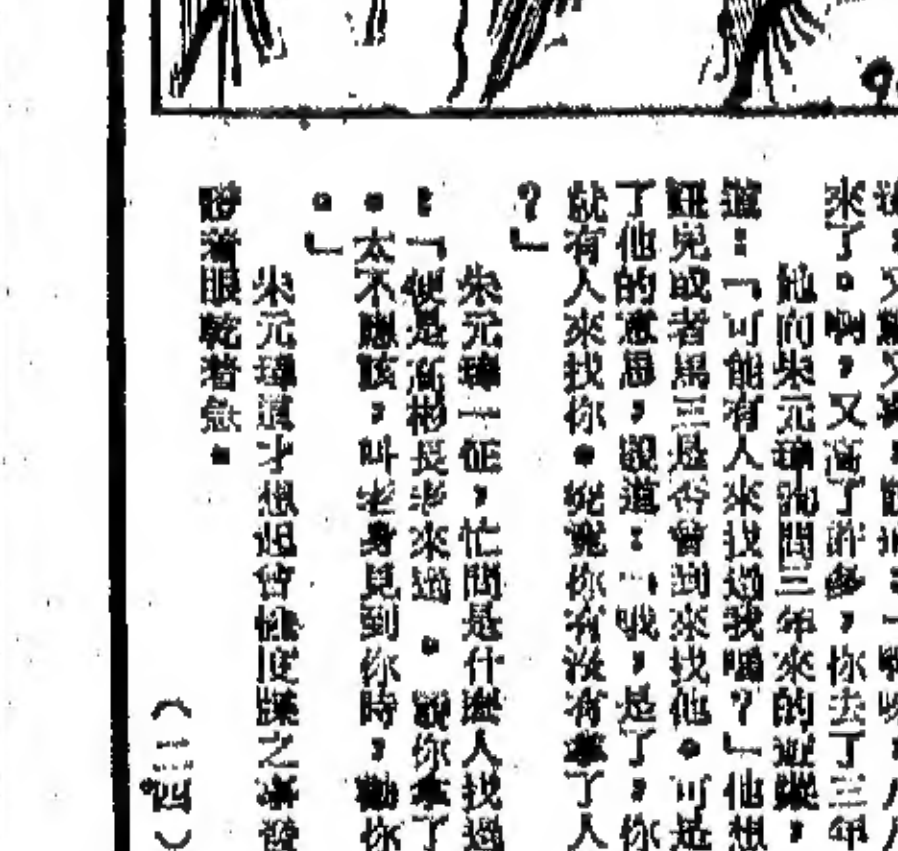 又　又　，
來了。啊，又高了許多，你去了三年
他向朱元璋詢問三年來的遊蹤，
道：「可能有人來找過我嗎？」他想
鈕兒或者馬三是否曾到來找他。可是
了他的意思，說道：「哦，是了，你
就有人來找你。究竟你有沒有拿了人
？」
朱元璋一怔，忙問是什麼人找過
：「便是高彬長老來過。說你拿了
。太不應該，叫老身見到你時，勸你
。」
朱元璋這才想起曾　度牒之事發
瞪着眼乾着急。
（二四）